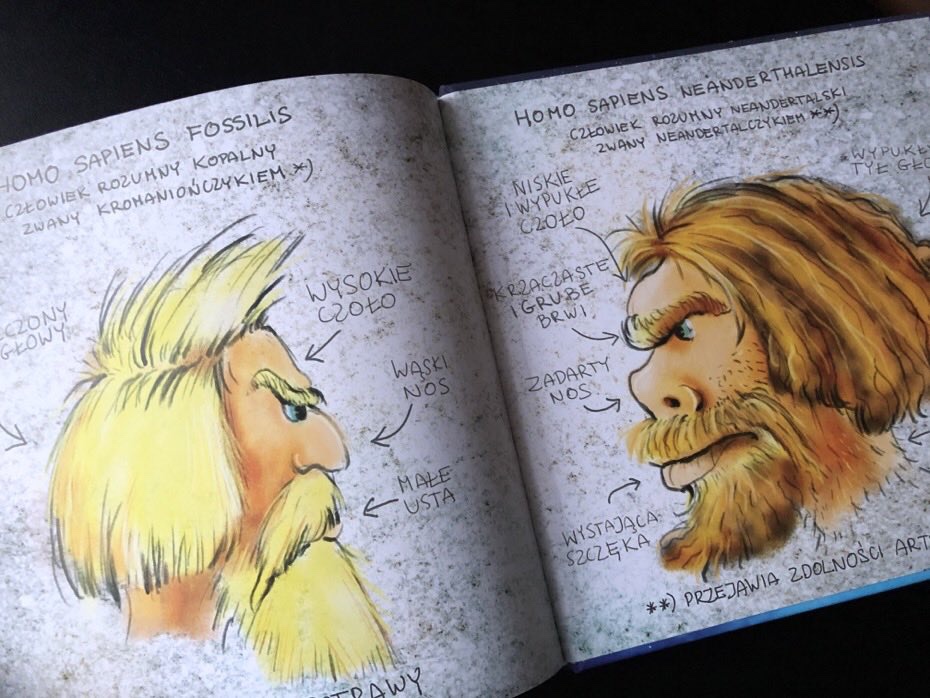 HOMO SAPIENS FOSSILIS
CZŁOWIEK ROZUMNY KOPALNY
ZWANY KROMANIOŃCZYKIEM *)
CZONY
GŁOWY
WYSOKIE
CZOŁO
WĄSKI
NOS
MAŁE
USTA
TRAWY
HOMO SAPIENS NEANDERTHALENSIS
CZŁOWIEK ROZUMNY NEANDERTALSKI
ZWANY NEANDERTALCZYKIEM **)
NISKIE
I WYPUKŁE
CZOŁO
WYPUKŁ
TYŁ GŁO
KRZACZASTE
I GRUBE
BRWI
ZADARTY
NOS
WYSTAJĄCA
SZCZĘKA
**) PRZEJAWIA ZDOLNOŚCI ART